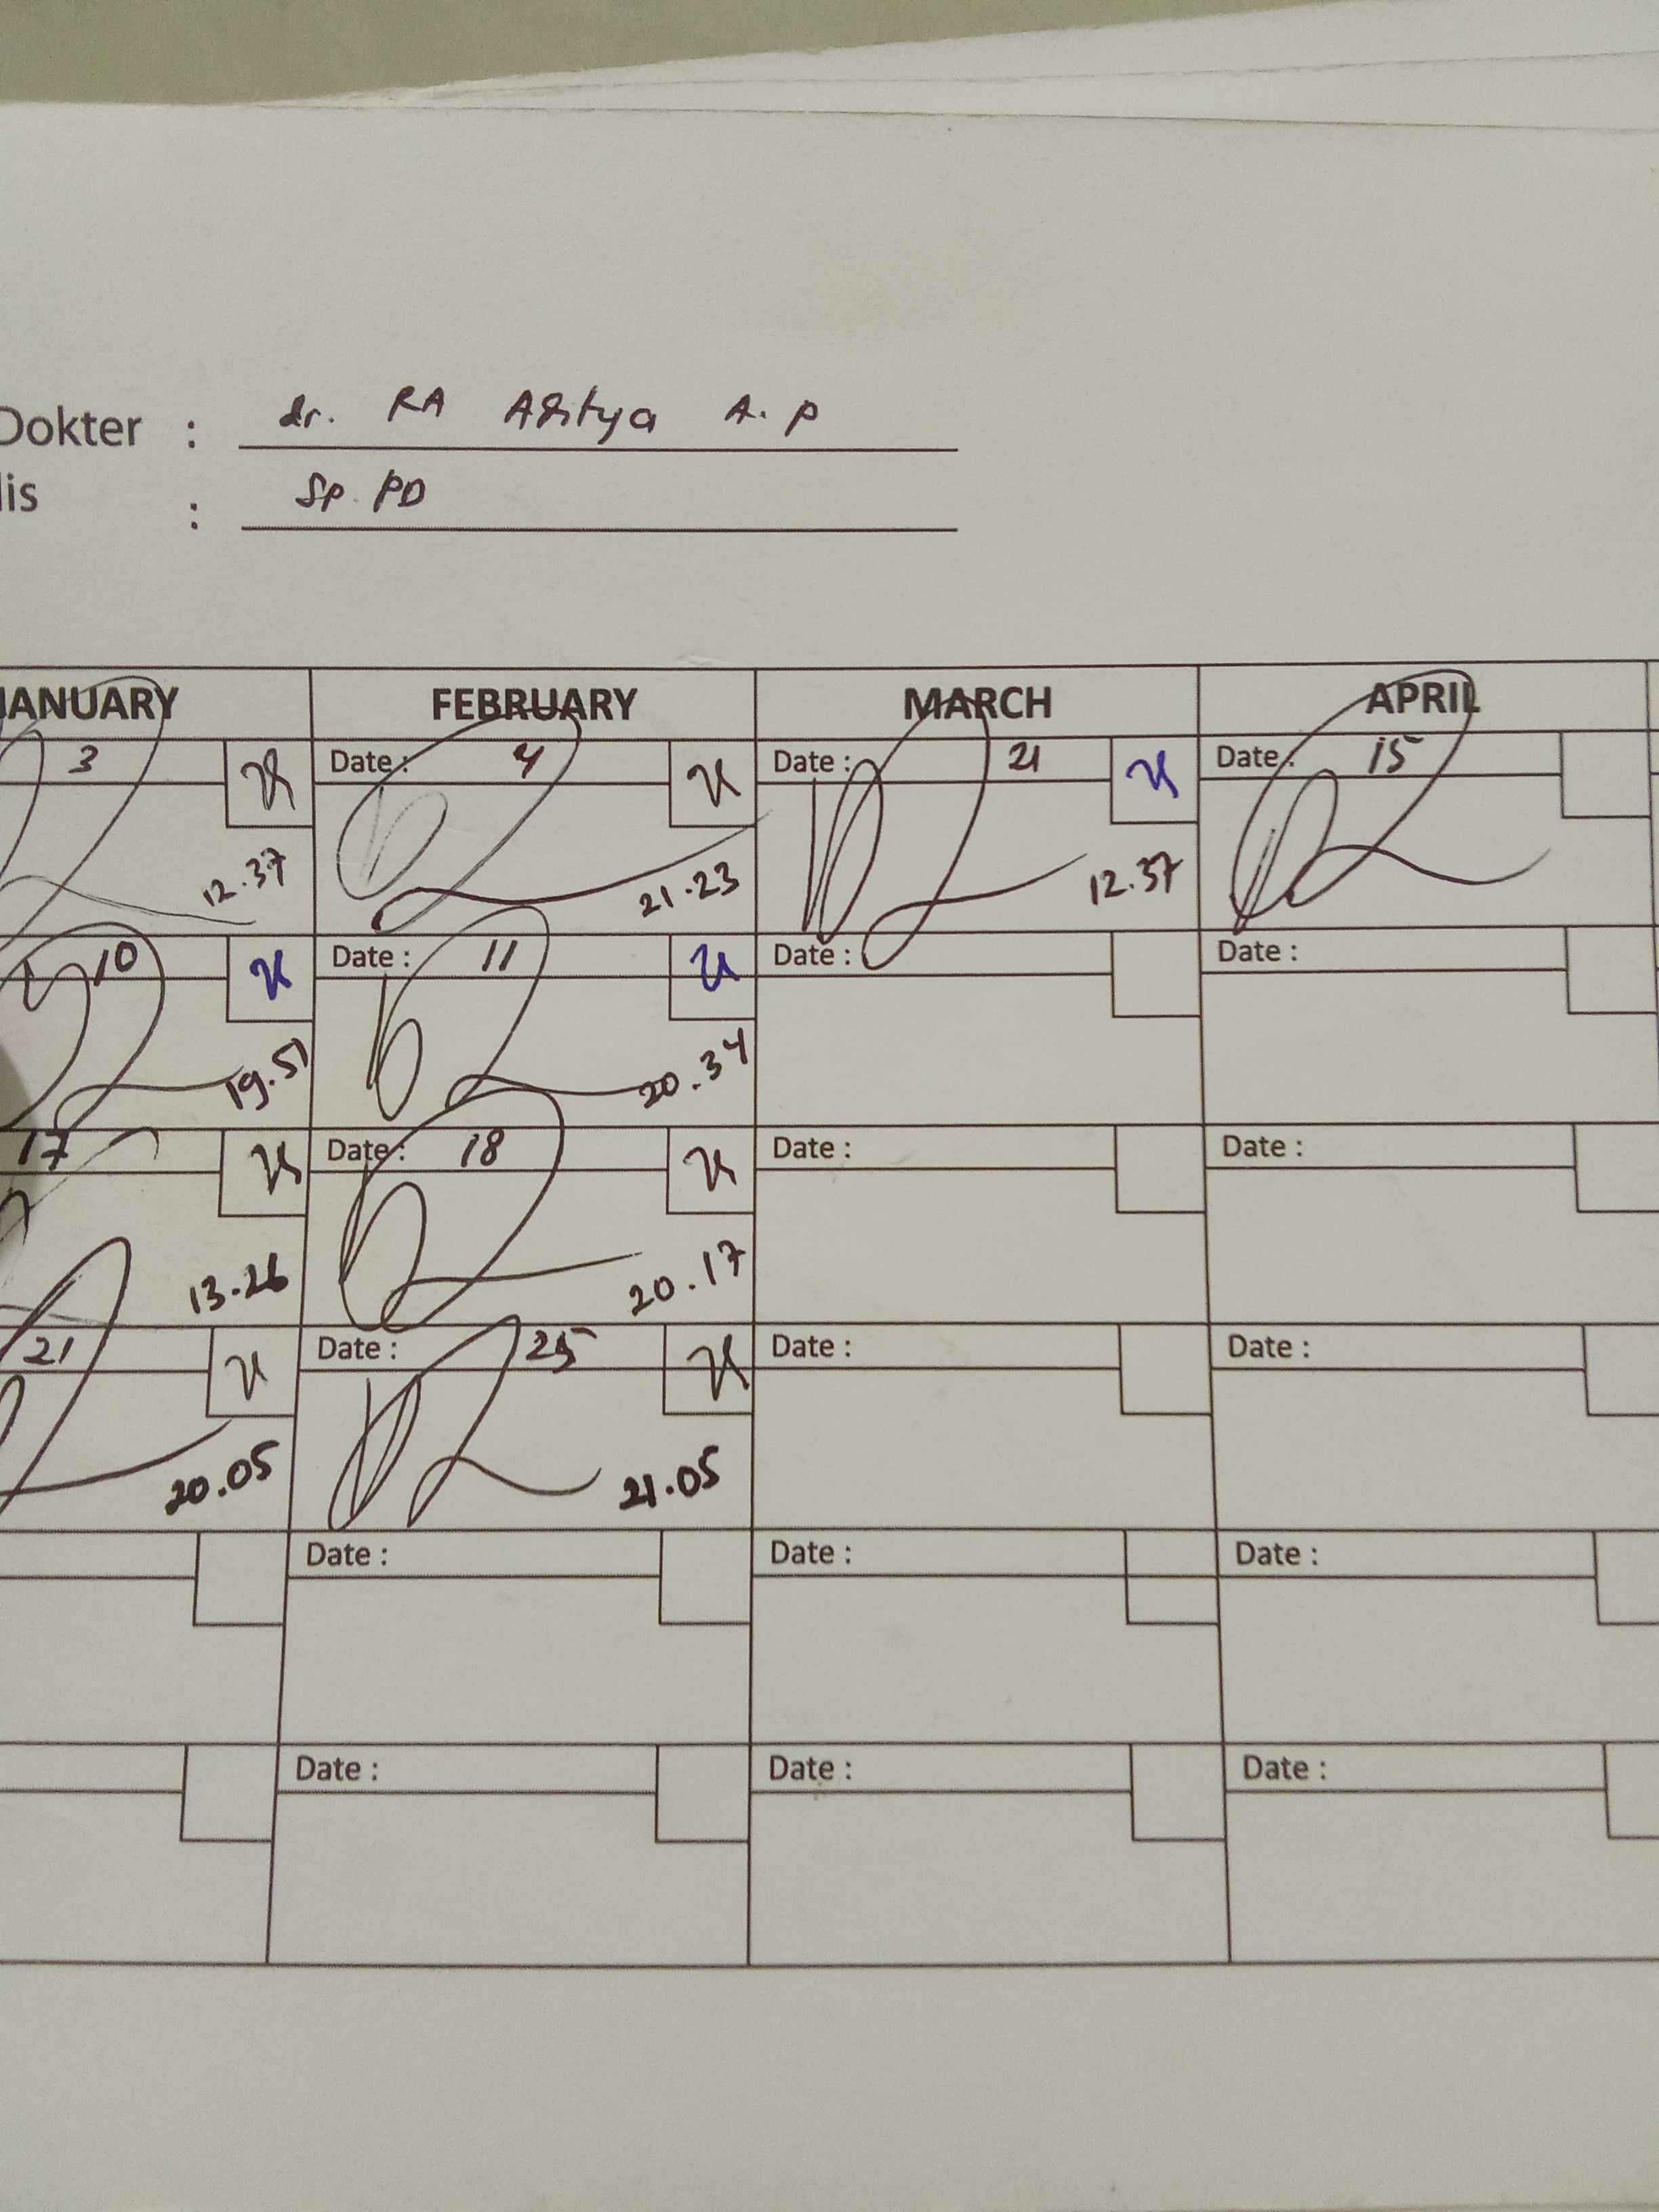 Dokter : dr. RA Aditya A. P
lis : Sp. PD
JANUARY FEBRUARY MARCH APRIL
3 Date : 4 Date : 21 Date : 15
12.37 21.23 12.37
10 Date : 11 Date : Date :
19.51 20.34
17 Date : 18 Date : Date :
13.26 20.17
21 Date : 25 Date : Date :
20.05 21.05
Date : Date : Date :
Date : Date : Date :